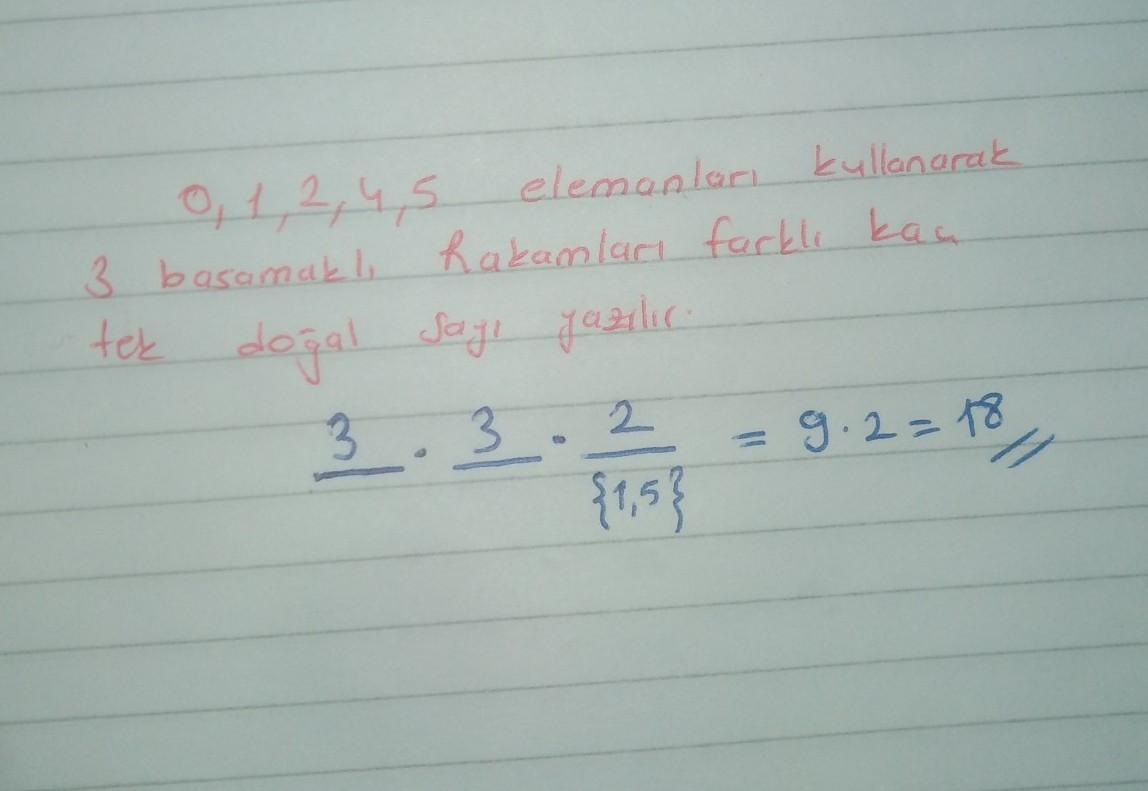 0, 1, 2, 4, 5 elemanları kullanarak
3 basamaklı, Rakamları farklı kaç
tek doğal sayı yazılır.
3 . 3 . 2 = 9.2 = 18 //
{1,5}